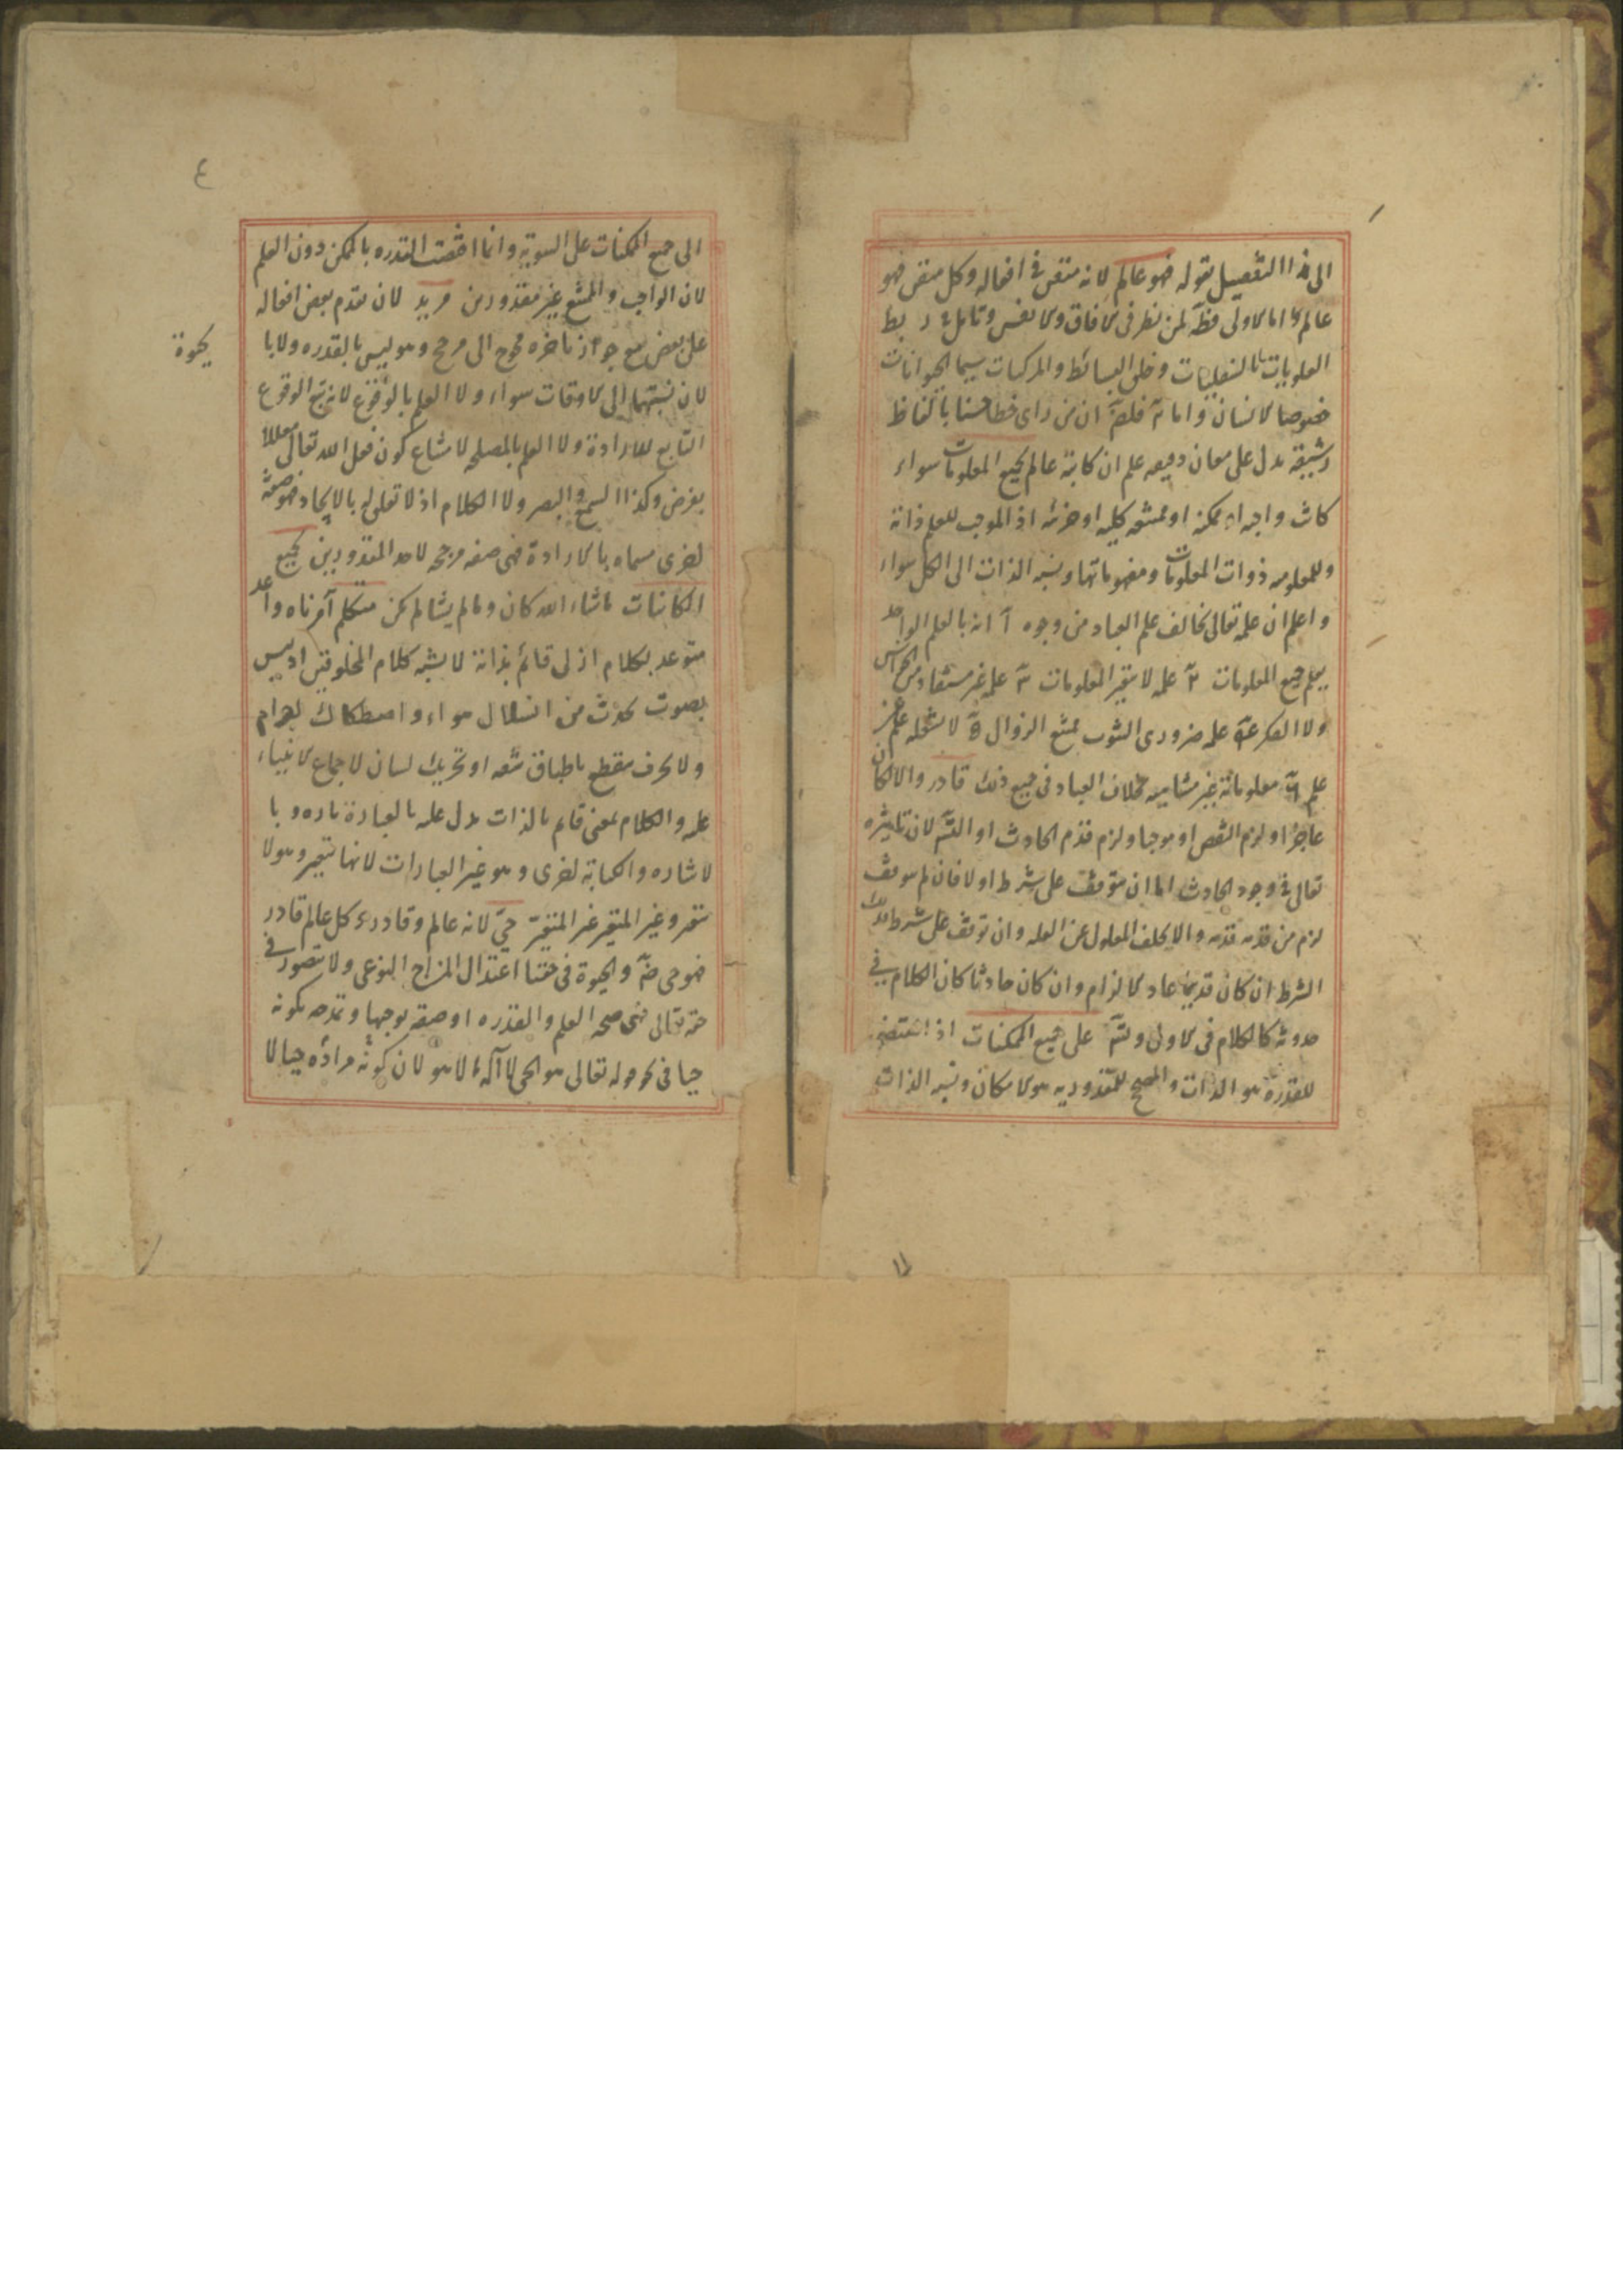 الى هذا التفصيل بقوله فهو عالم لانه متقن فى افعاله وكل متقن فهو
عالم اما الاولى فظ لمن نظر فى الافاق والانفس وتامل ربط
العلويات بالسفليات وخلق البسائط والمركبات سيما الحيوانات
خصوصا الانسان واما فلان من راى خطا حسنا بالفاظ
رشيقة يدل على معان دقيقه علم ان كاتبه عالم بجميع المعلومات سواء
كانت واجبه او ممكنه او ممتنعه كليه او جزئيه اذ الموجب للعلم ذاته
وللمعلوميه ذوات المعلومات ومفهوماتها ونسبه الذات الى الكل سواء
واعلم ان علمه تعالى يخالف علم العباد من وجوه آ انه بالعلم الواحد
يعلم جميع المعلومات علمه لا يتغير المعلومات علمه غير مستفاد من الحواس
ولا الفكر علمه ضرورى الثبوت ممتنع الزوال لا يشغله علم عن
علم معلوماته غير متناهيه بخلاف العباد فى جميع ذلك قادر والا لكان
عاجزا ولزم النقص او موجبا ولزم قدم الحادث او التس لان تاثيره
تعالى فى وجود الحادث اما ان يتوقف على شرط او لا فان لم يتوقف
لزم من قدمه قدمه والا يخلف المعلول عن العله وان توقف على شرط فذلك
الشرط ان كان قديما عاد الالزام وان كان حادثا كان الكلام فى
حدوثه كالكلام فى الاولى وتس على جميع الممكنات اذ المقتضى
للقدرة هو الذات والمصحح للمقدوريه هو الامكان ونسبه الذات
١١
٤
الى جميع الممكنات على السوية وانما اختصت القدره بالممكن دون العلم
لان الواجب والممتنع غير مقدورين مريد لان تقدم بعض افعاله
على بعض مع جواز تاخره محوج الى مرجح وهو ليس بالقدره ولا با
لحيوة
لان نسبتهما الى الاوقات سواء ولا العلم بالوقوع لانه تبع الوقوع
التابع للارادة ولا العلم بالمصلحه لامتناع كون فعل الله تعالى معللا
بغرض وكذا السمع والبصر ولا الكلام اذ لا تعلق له بالايجاد فهو صفة
اخرى مسماه بالارادة فهى صفه مرجحه لاحد المقدورين بجميع
الكائنات ماشاء الله كان وما لم يشا لم يكن متكلم آمر ناه واعد
متوعد بكلام ازلى قائم بذاته لا يشبه كلام المخلوقين اذ ليس
بصوت يحدث من انسلال هواء واصطكاك اجرام
ولا بحرف يتقطع باطباق شفه او تحريك لسان لاجماع الانبياء
عليه والكلام بمعنى قايم بالذات يدل عليه بالعبارة تاره وبا
لاشاره والكتابة اخرى وهو غير العبارات لانها تتغير وهو لا
يتغير وغير المتغير غير المتغير حي لانه عالم وقادر وكل عالم قادر
فهو حى ضة والحيوة فى حقنا اعتدال المزاج النوعى ولا يتصور فى
حقه تعالى فهى صحه العلم والقدره او صفه توجبها وتمدحه بكونه
حيا فى نحو قوله تعالى هو الحى لا اله الا هو لان كونه مرادة حيا لا